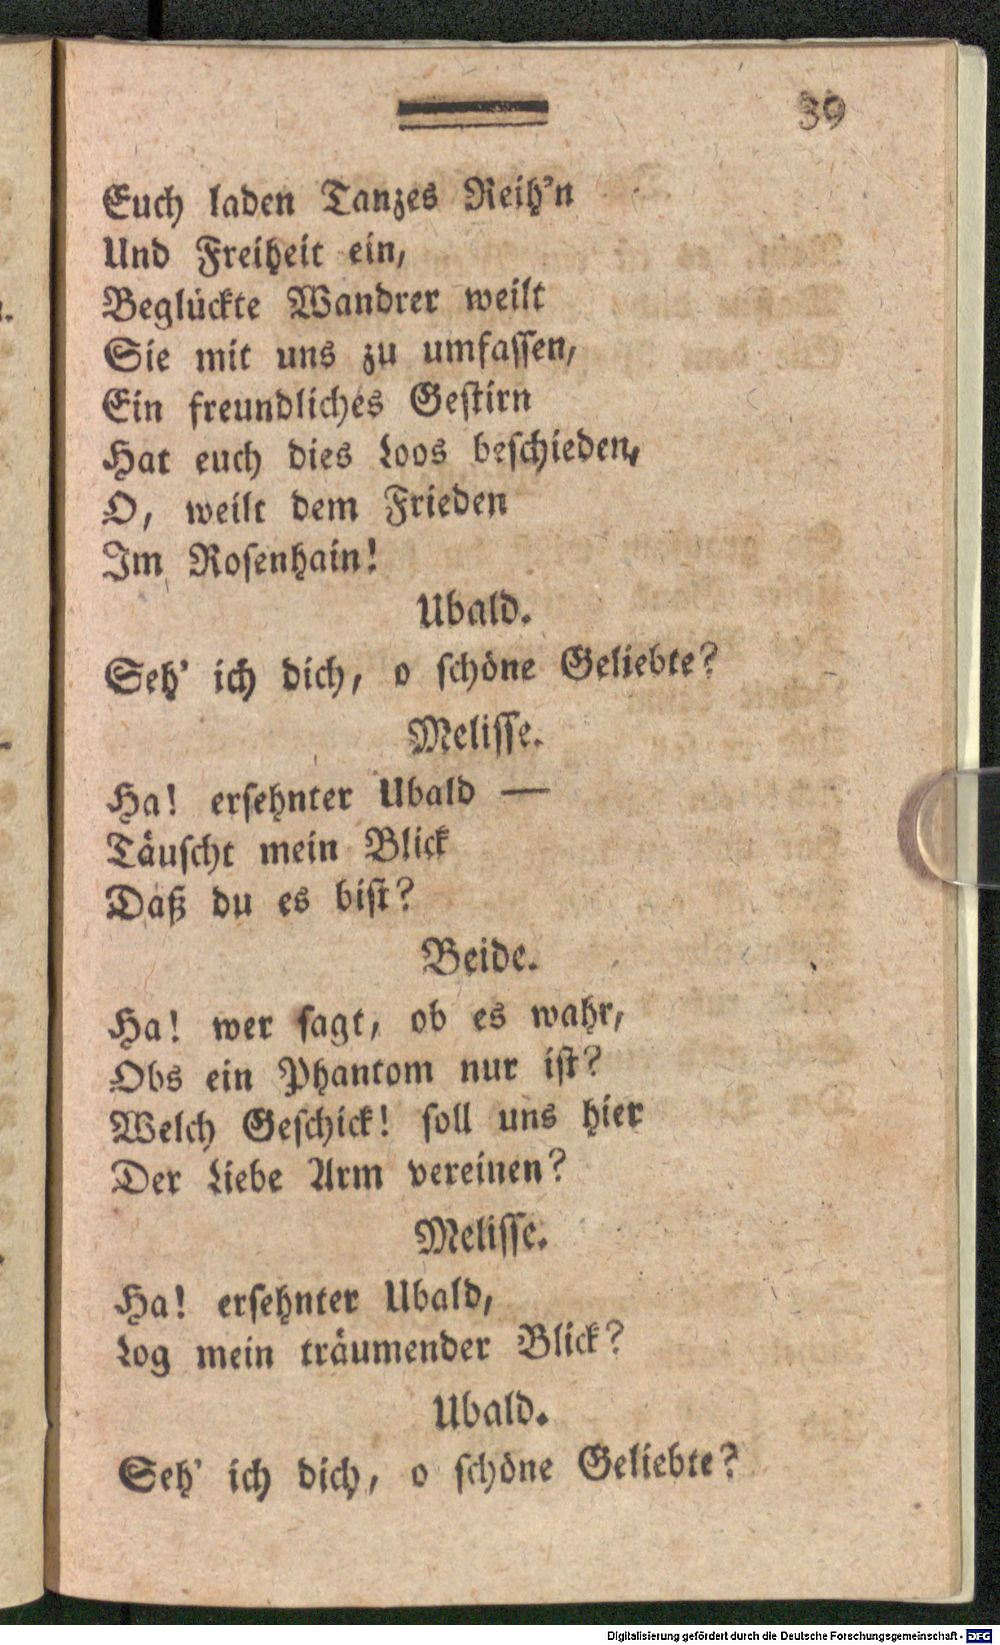 39
Euch laden Tanzes Reih'n
Und Freiheit ein,
Beglückte Wandrer weilt
Sie mit uns zu umfaſſen,
Ein freundliches Geſtirn
Hat euch dies Loos beſchieden,
O, weilt dem Frieden
Im Roſenhain!
Ubald.
Seh' ich dich, o ſchöne Geliebte?
Meliſſe.
Ha! erſehnter Ubald —
Täuſcht mein Blick
Daß du es biſt?
Beide.
Ha! wer ſagt, ob es wahr,
Obs ein Phantom nur iſt?
Welch Geſchick! ſoll uns hier
Der Liebe Arm vereinen?
Meliſſe.
Ha! erſehnter Ubald,
Log mein träumender Blick?
Ubald.
Seh' ich dich, o ſchöne Geliebte?
Digitalisierung gefördert durch die Deutsche Forschungsgemeinschaft - DFG